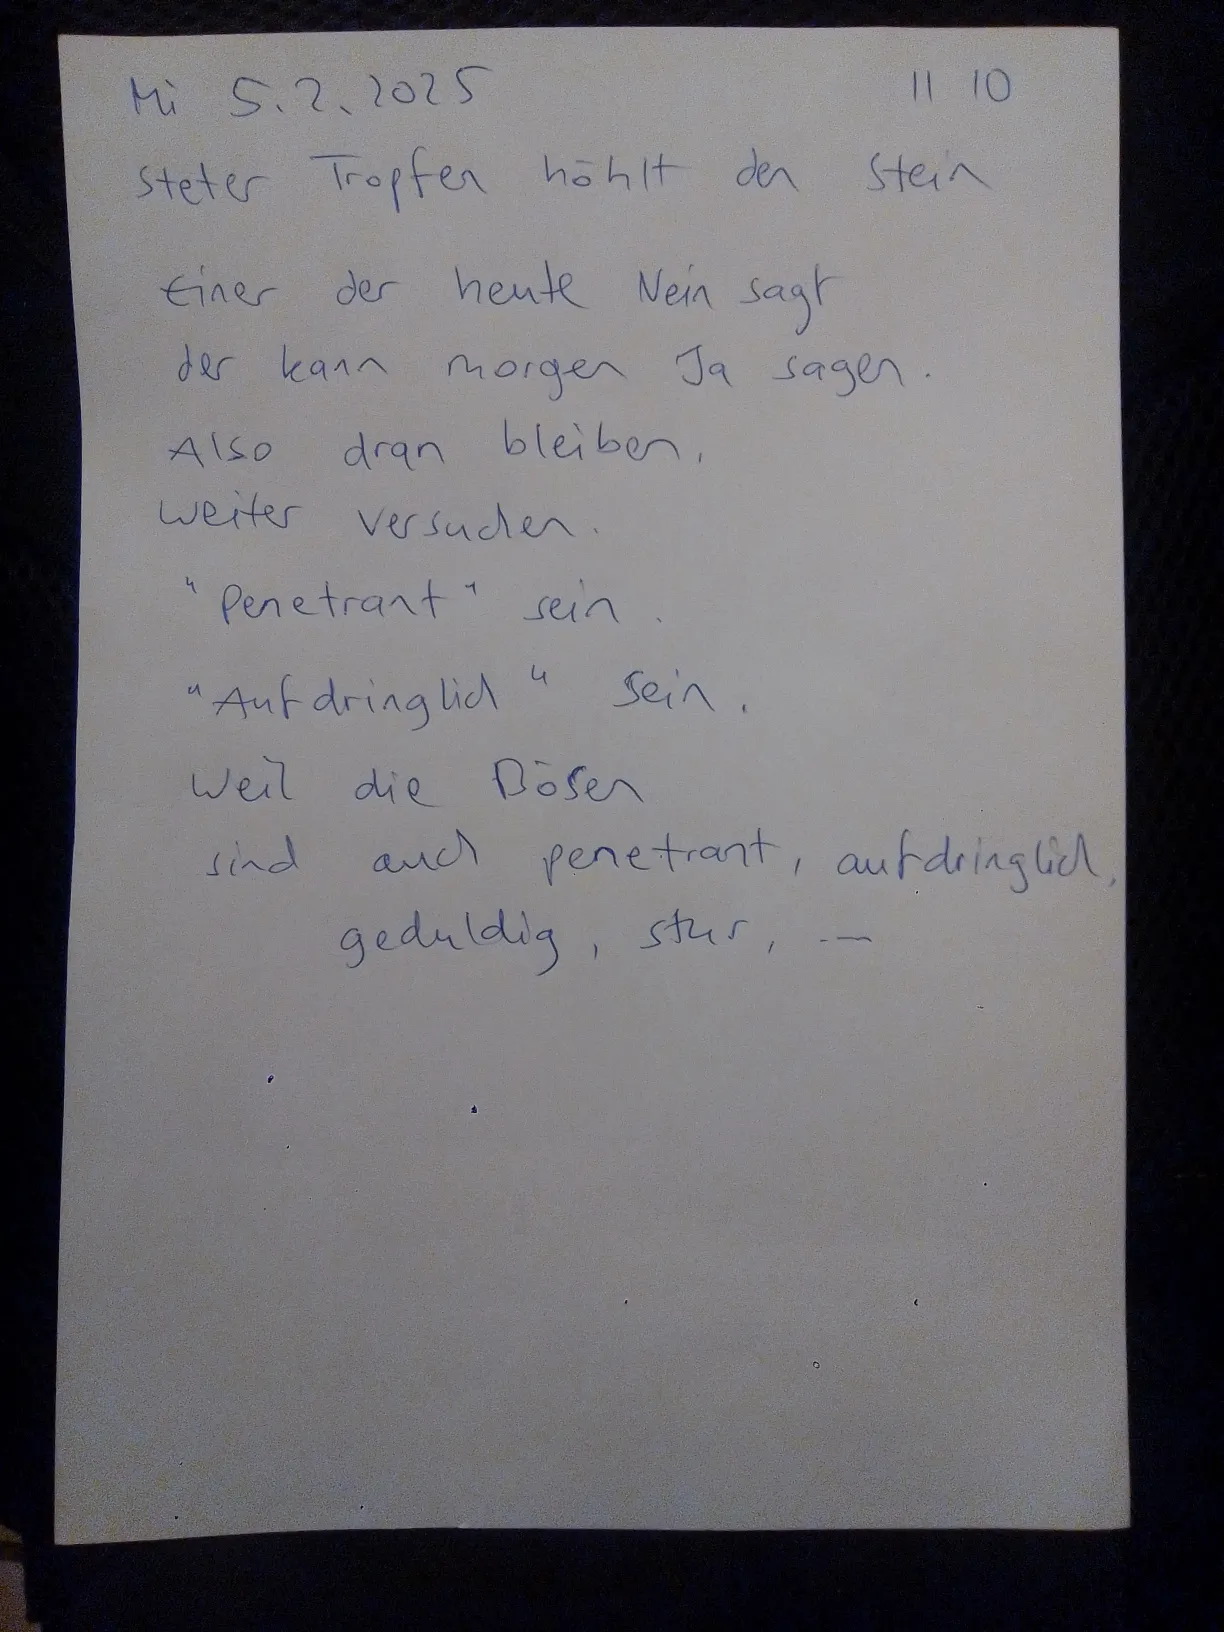 Mi 5.2.2025 11 10
steter Tropfen höhlt den Stein
Einer der heute Nein sagt
der kann morgen Ja sagen.
Also dran bleiben.
weiter versuchen.
"penetrant" sein.
"Aufdringlich" sein.
Weil die Bösen
sind auch penetrant, aufdringlich,
geduldig, stur, ...